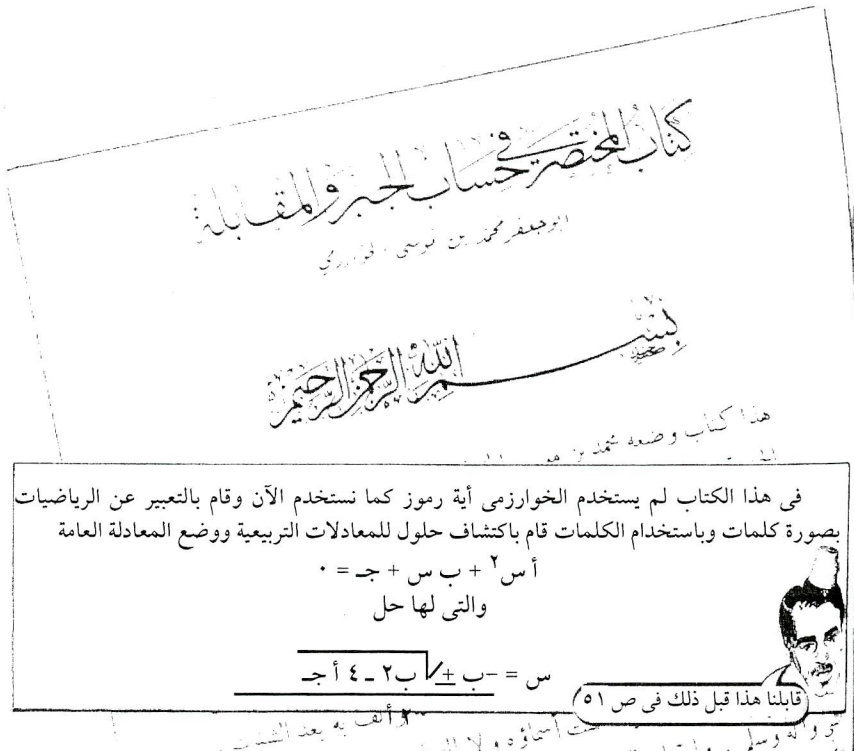 كتاب المختصر في حساب الجبر والمقابلة
ابو جعفر محمد بن موسى الخوارزمي
بسم الله الرحمن الرحيم
هذا كتاب وضعه محمد بن
فى هذا الكتاب لم يستخدم الخوارزمى أية رموز كما نستخدم الآن وقام بالتعبير عن الرياضيات
بصورة كلمات وباستخدام الكلمات قام باكتشاف حلول للمعادلات التربيعية ووضع المعادلة العامة
أ س٢ + ب س + جـ = ٠
والتى لها حل
س = –ب ± √ب٢ ـ ٤ أ جـ
٢
قابلنا هذا قبل ذلك فى ص ٥١
وألف به بعد الشتات
أسماؤه ولا
وآله وسلم